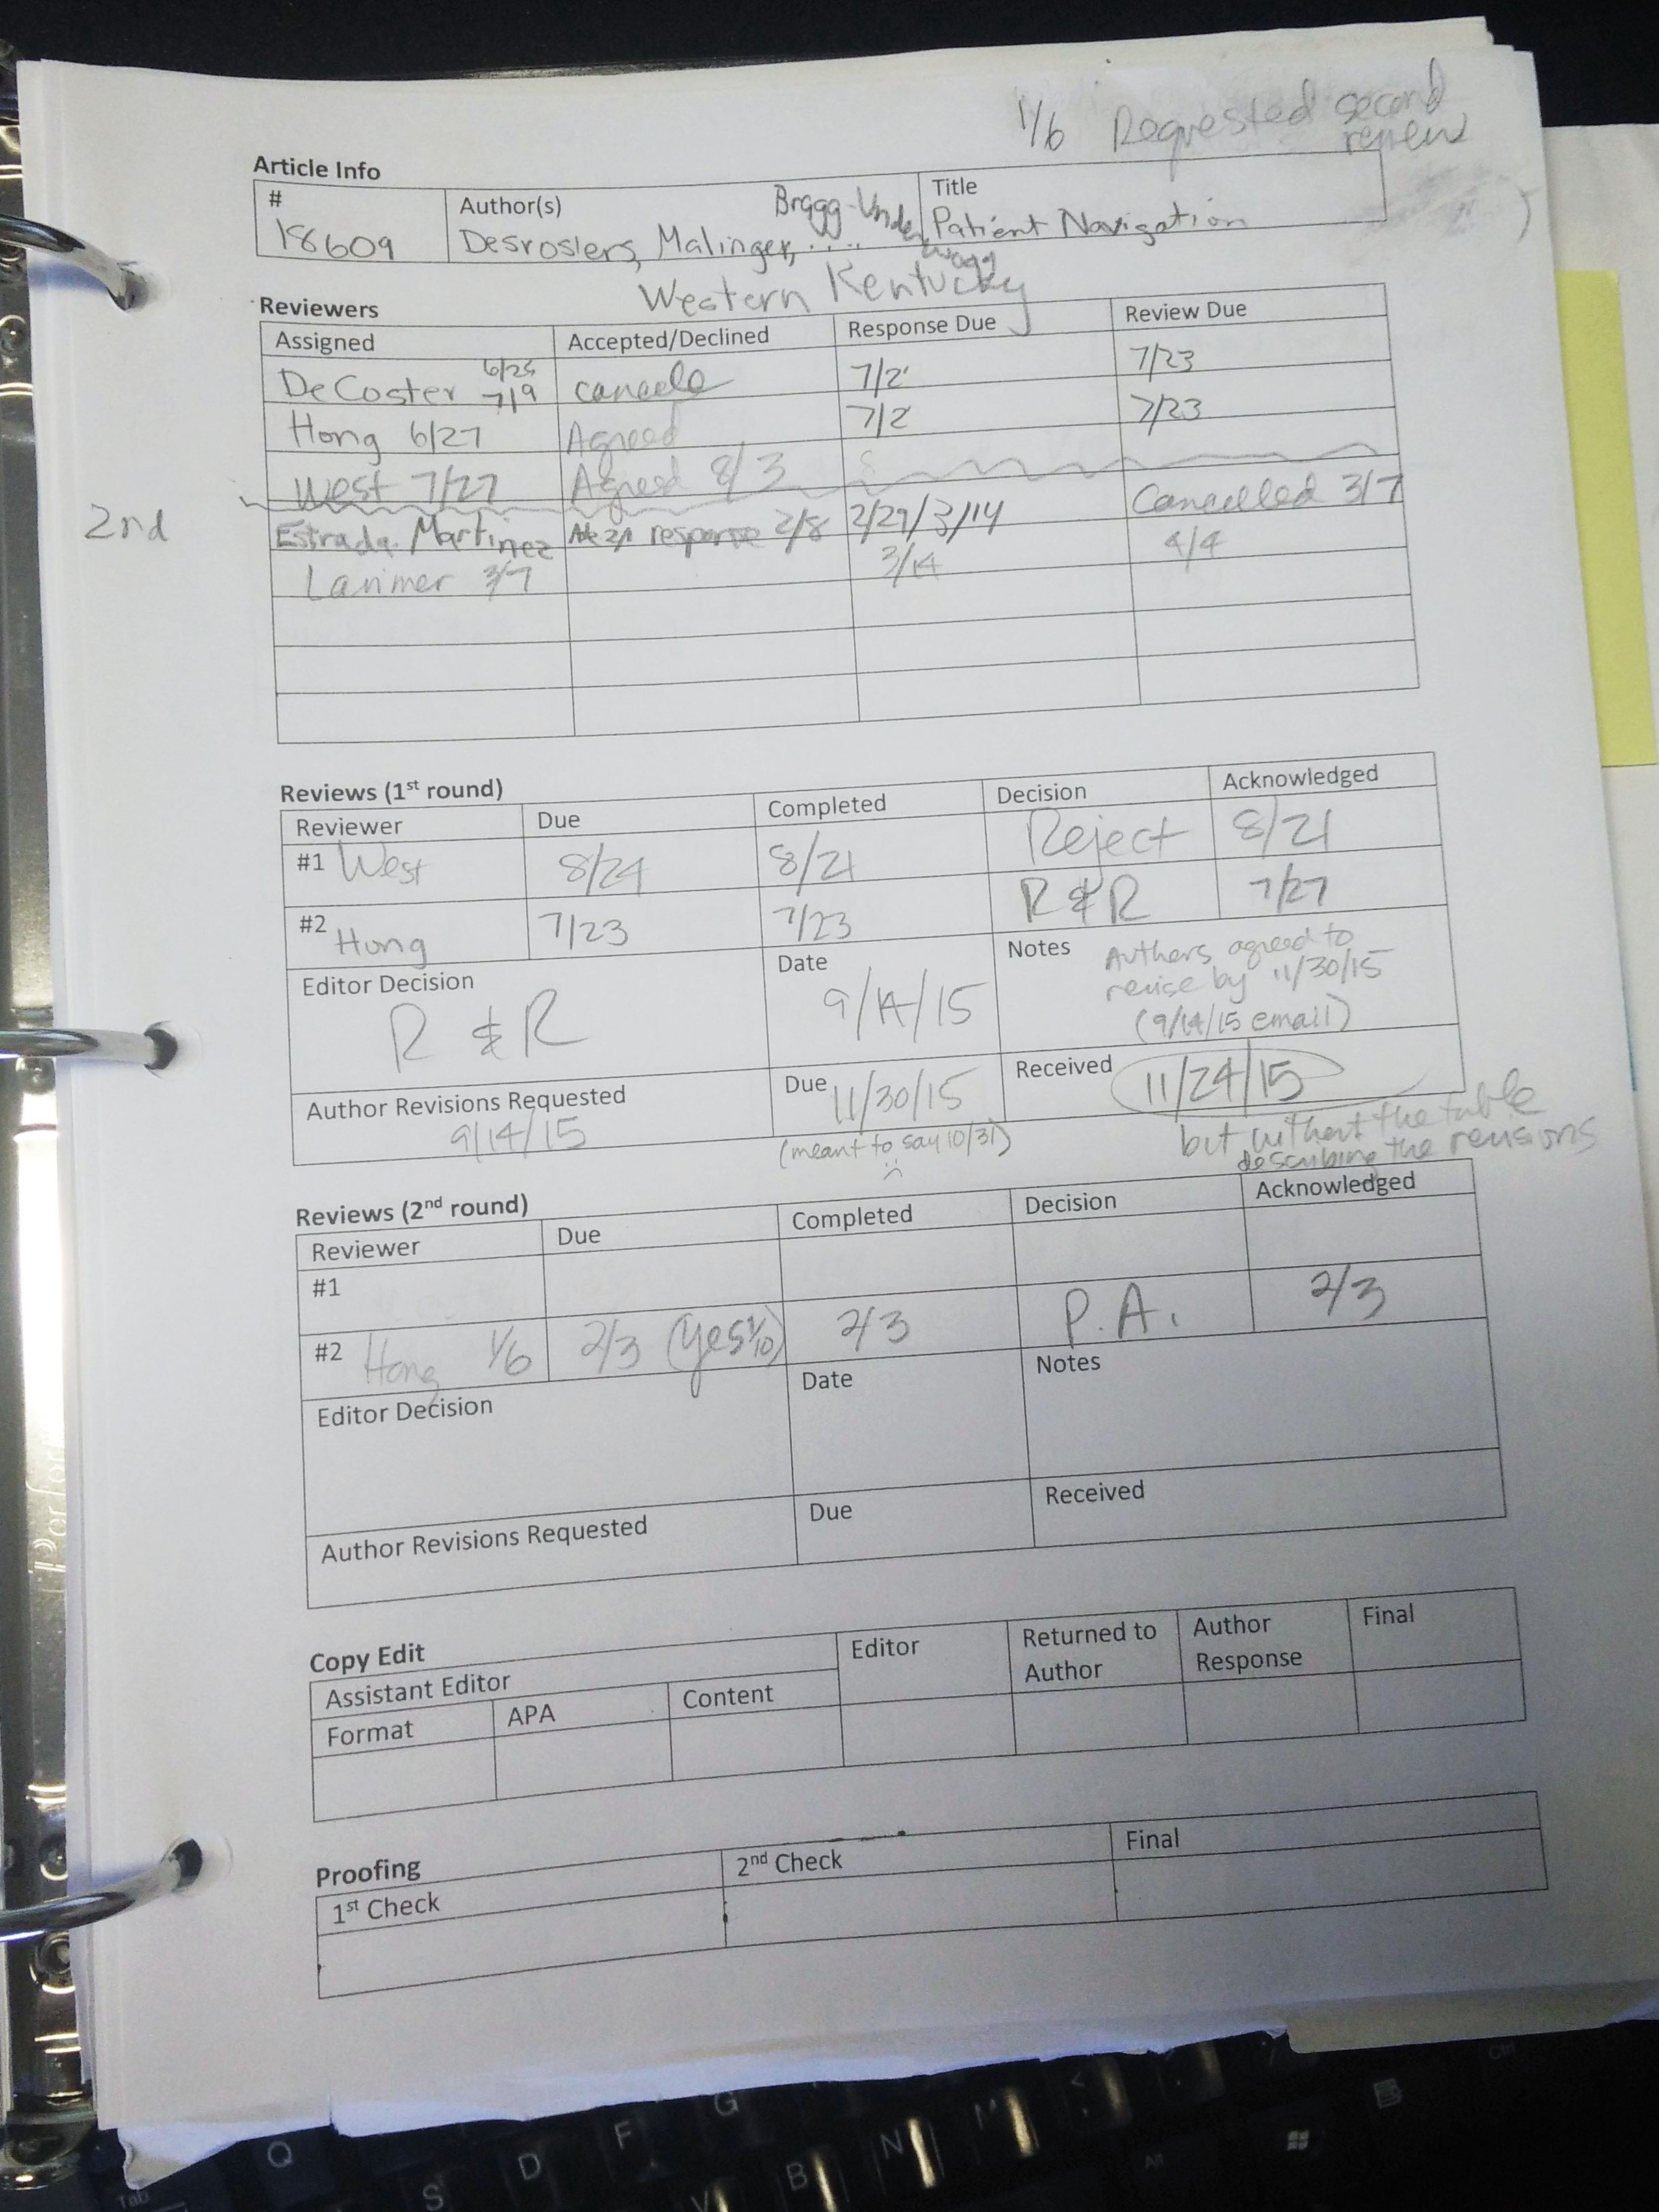 1/6 Requested second
review
Article Info
# Author(s) Title
18609 Desrosiers, Malinger, .... Bragg-Underwood Patient Navigation
Western Kentucky
Reviewers
Assigned Accepted/Declined Response Due Review Due
DeCoster 6/25 7/9 cancele 7/2 7/23
Hong 6/27 Agreed 7/2 7/23
West 7/27 Agreed 8/3
2nd Estrada-Martinez response 2/8 2/29/3/14 Cancelled 3/7
Larimer 3/7 3/14 4/4
Reviews (1st round)
Reviewer Due Completed Decision Acknowledged
#1 West 8/24 8/21 Reject 8/21
#2 Hong 7/23 7/23 R & R 7/27
Editor Decision Date Notes Authors agreed to
R & R 9/14/15 revise by 11/30/15
(9/14/15 email)
Author Revisions Requested Due 11/30/15 Received 11/24/15
9/14/15 (meant to say 10/31) but without the table
describing the revisions
Reviews (2nd round)
Reviewer Due Completed Decision Acknowledged
#1
#2 Hong 1/6 2/3 (yes 1/10) 2/3 P.A. 2/3
Editor Decision Date Notes
Author Revisions Requested Due Received
Copy Edit
Assistant Editor Editor Returned to Author Author Response Final
Format APA Content
Proofing
1st Check 2nd Check Final
Q
S D F G
V B N M
Tab Alt Ctrl